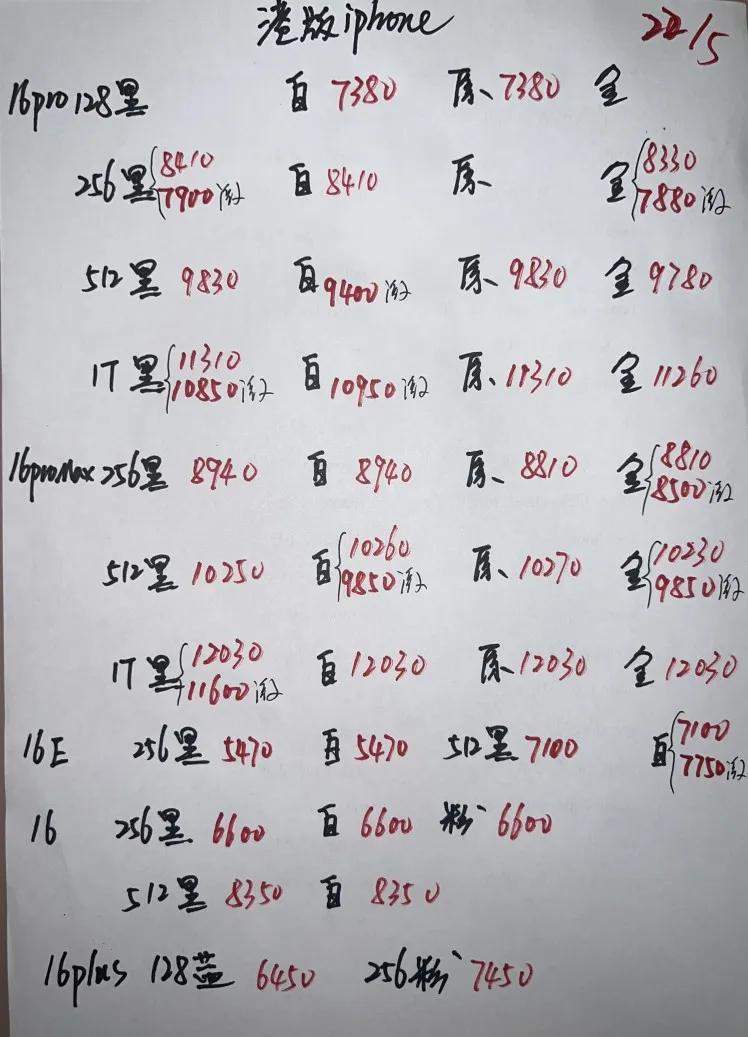 港版iphone 22/5
16pro 128黑 白 7380 原、7380 金
256黑{8410 7900激 白 8410 原、 金{8330 7880激
512黑 9830 白 9400激 原、9830 金 9780
1T 黑{11310 10850激 白 10950激 原、11310 金 11260
16proMax 256黑 8940 白 8940 原、8810 金{8810 8500激
512黑 10250 白{10260 9850激 原、10270 金{10230 9850激
1T 黑{12030 11600激 白 12030 原、12030 金 12030
16E 256黑 5470 白 5470 512黑 7100 白{7100 7750激
16 256黑 6600 白 6600 粉 6600
512黑 8350 白 8350
16plus 128蓝 6450 256粉 7450